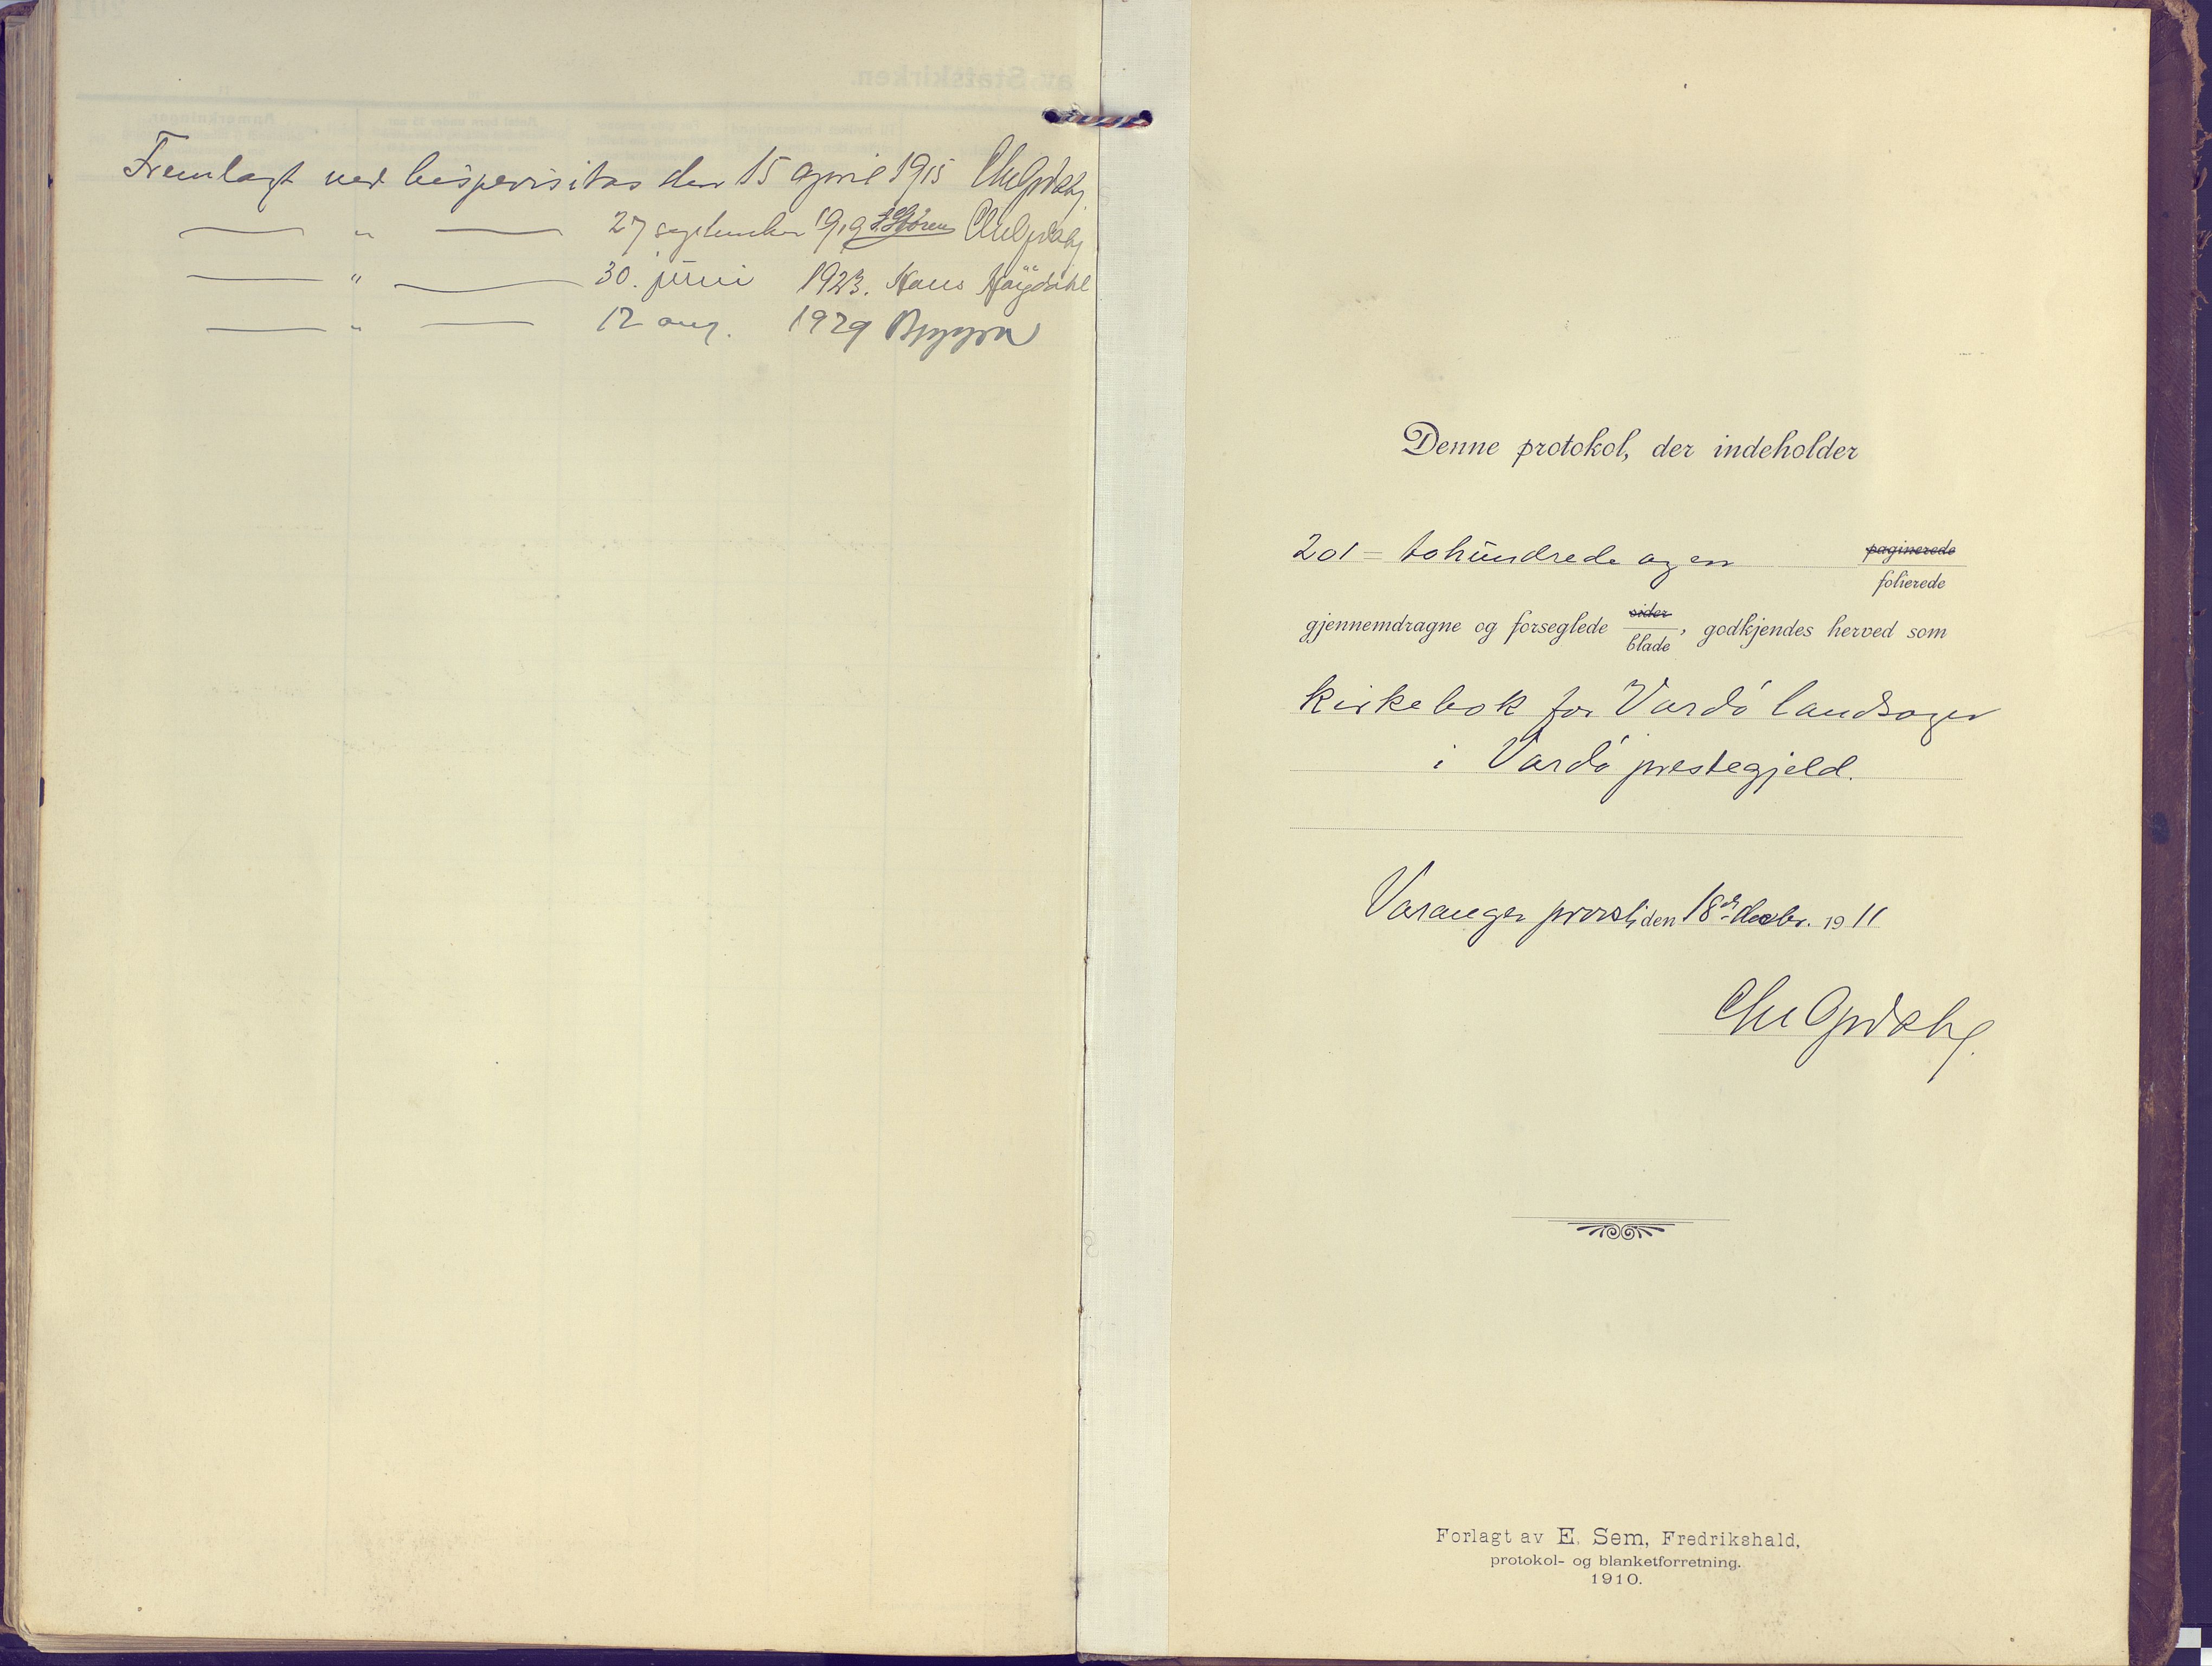 Fremlagt ved bispevisitas den 15 april 1915
— " — 27 september 1919 Støren
— " — 30. juni 1923. Hans Høydahl
— " — 12 aug. 1929
Denne protokol, der indeholder
201 = tohundrede og en paginerede
folierede
gjennemdragne og forseglede sider
blade, godkjendes herved som
kirkebok for Vardö landsogn
i Vardö prestegjeld.
Varanger provsti den 18de decbr. 1911
Forlagt av E. Sem, Fredrikshald,
protokol- og blanketforretning.
1910.